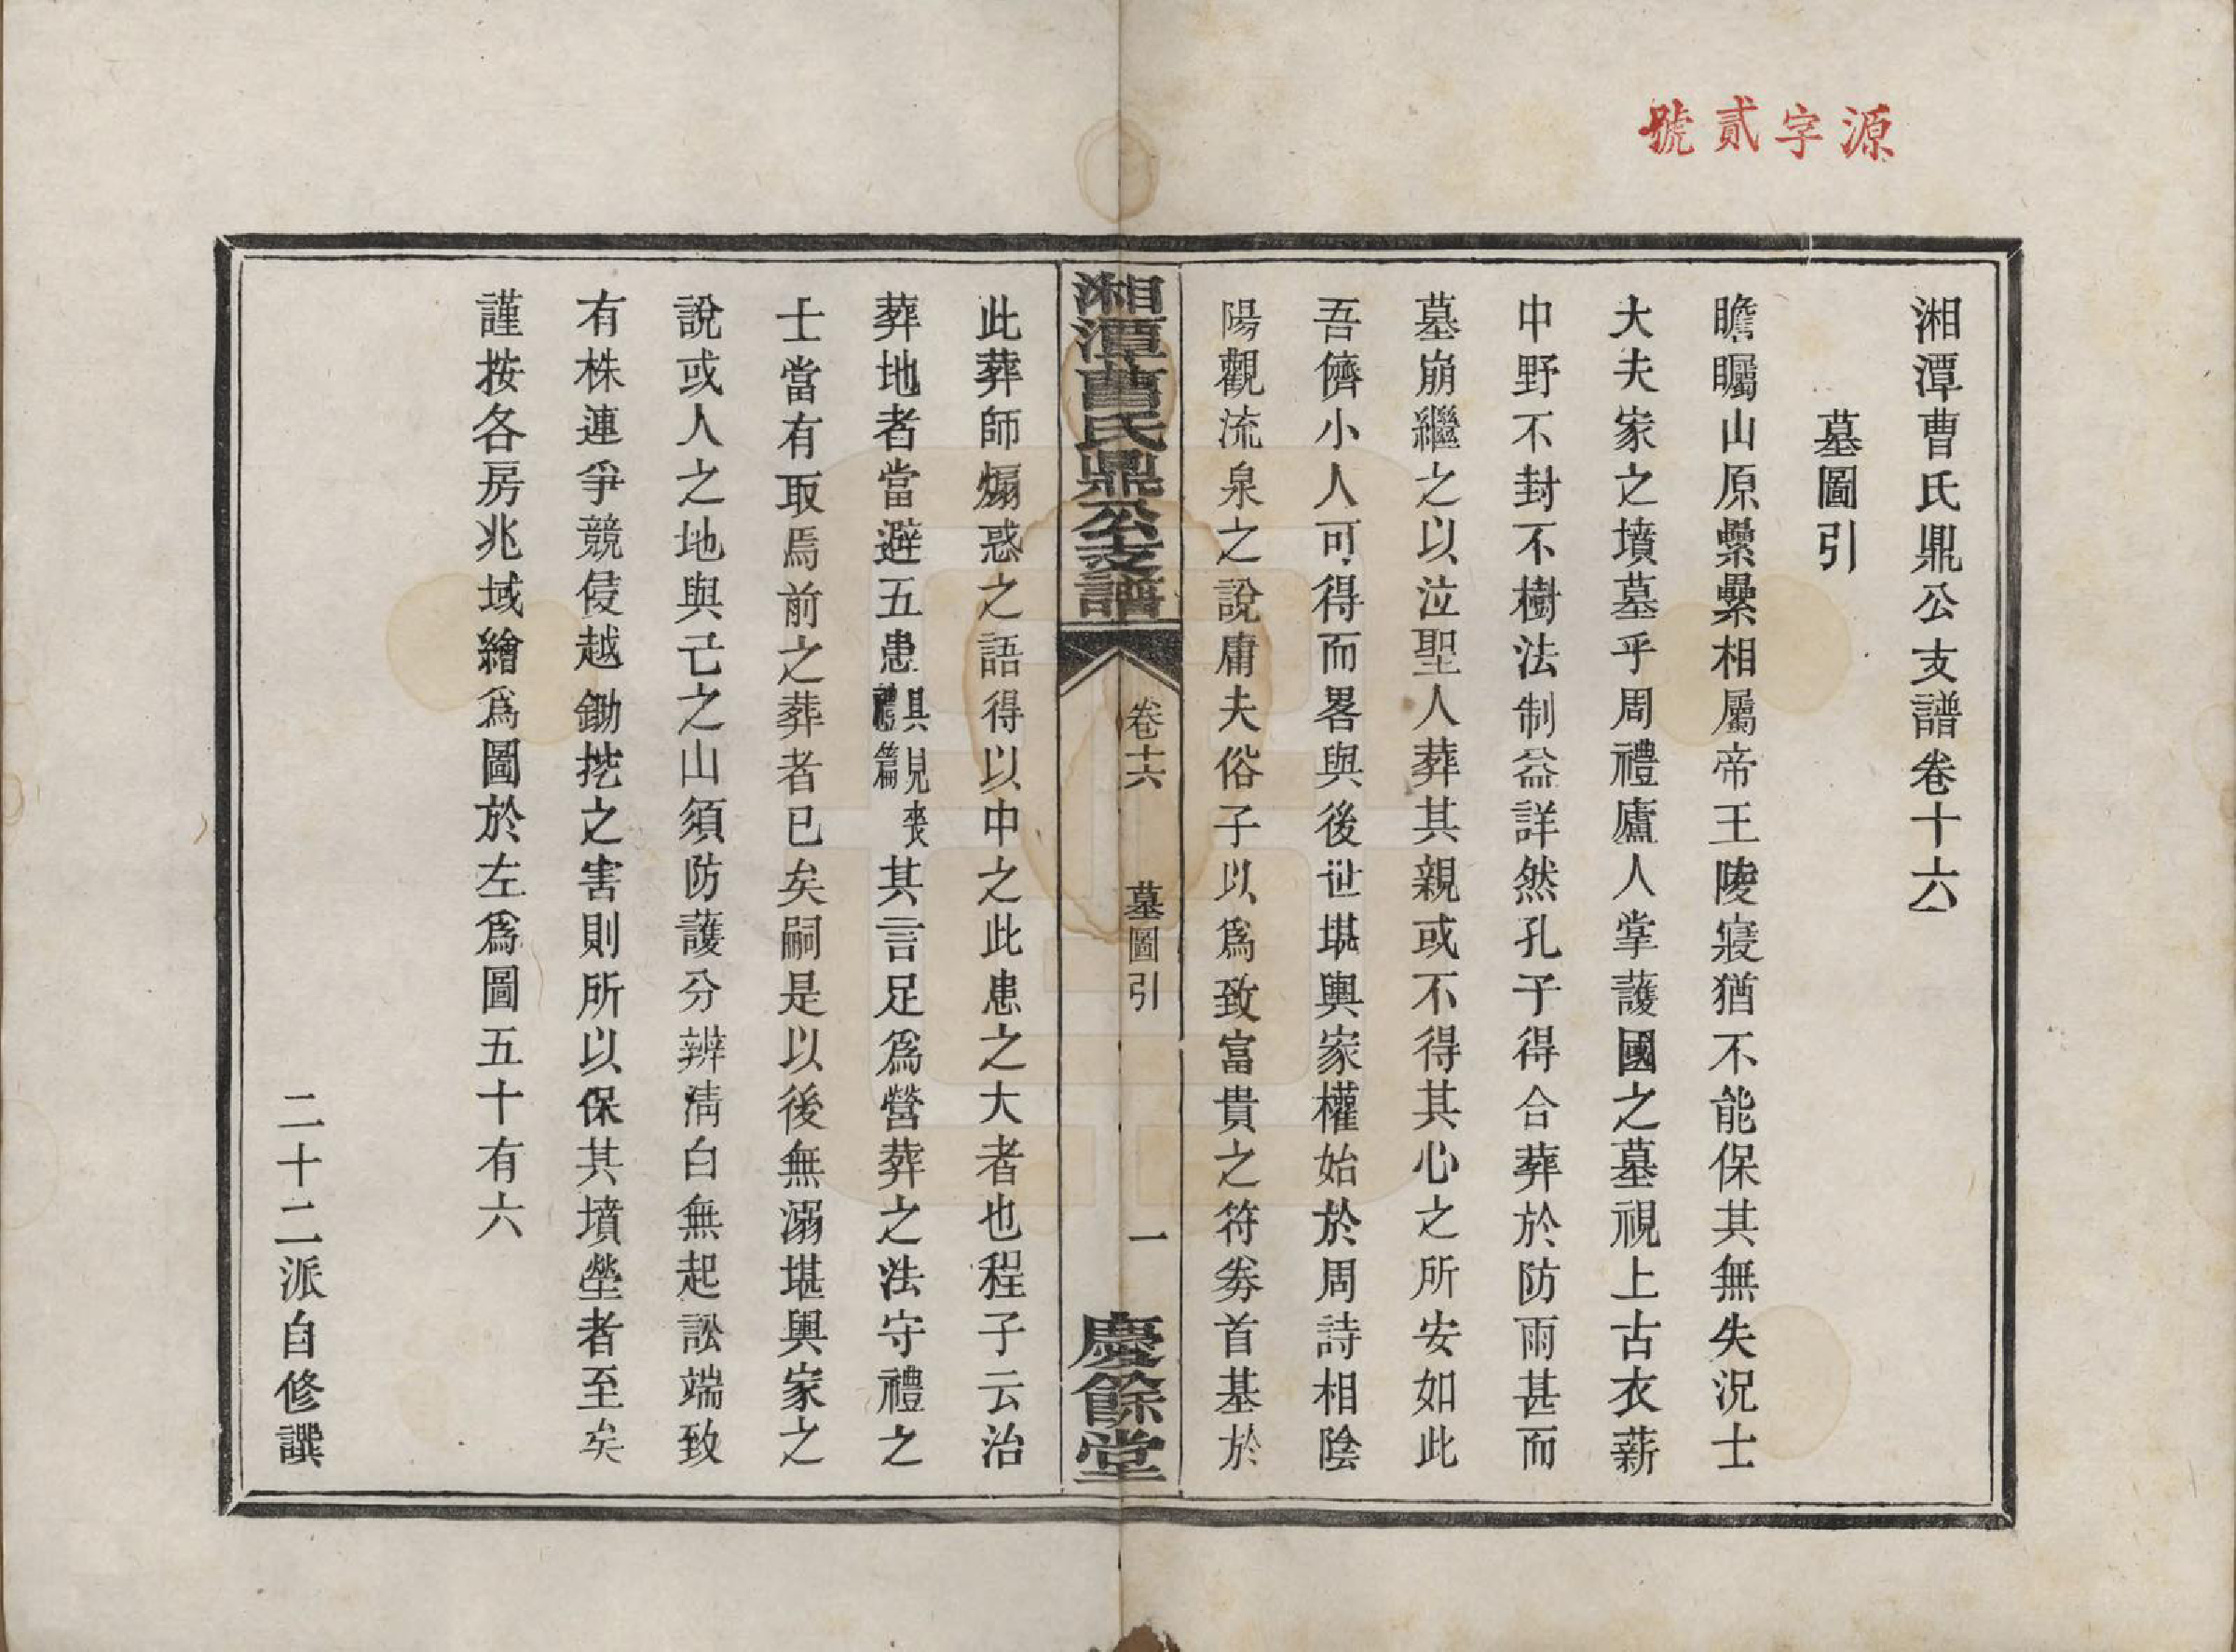 源字貳號
湘潭曹氏鼎公支譜卷十六
墓圖引
瞻矚山原纍纍相屬帝王陵寢猶不能保其無失況士
大夫家之墳墓乎周禮廬人掌護國之墓視上古衣薪
中野不封不樹法制益詳然孔子得合葬於防雨甚而
墓崩繼之以泣聖人葬其親或不得其心之所安如此
吾儕小人可得而畧與後世堪輿家權始於周詩相陰
陽觀流泉之說庸夫俗子以爲致富貴之符劵首基於
湘潭曹氏鼎公支譜
卷十六
墓圖引
一
慶餘堂
此葬師煽惑之語得以中之此患之大者也程子云治
葬地者當避五患具見喪禮篇其言足爲營葬之法守禮之
士當有取焉前之葬者已矣嗣是以後無溺堪輿家之
說或人之地與己之山須防護分辨淸白無起訟端致
有株連爭競侵越鋤挖之害則所以保其墳塋者至矣
謹按各房兆域繪爲圖於左爲圖五十有六
二十二派自修譔